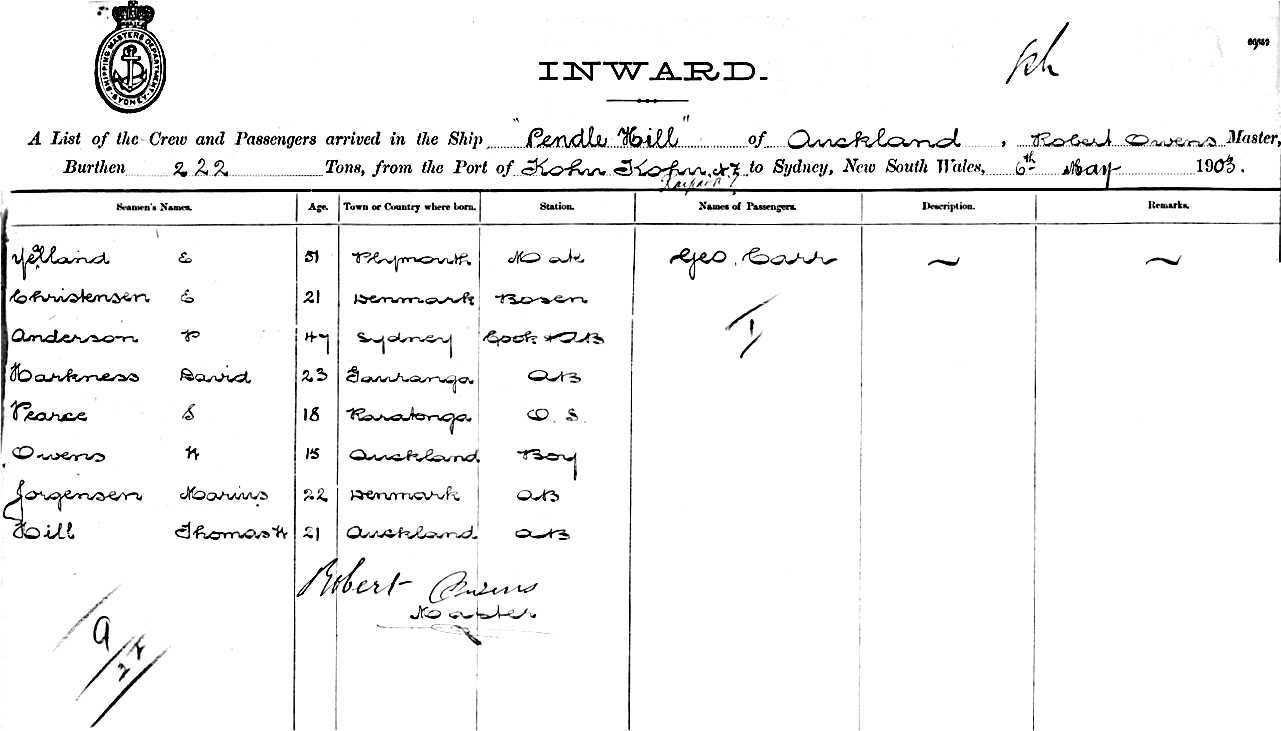 SHIPPING MASTERS DEPARTMENT
SYDNEY
INWARD.
A List of the Crew and Passengers arrived in the Ship "Pendle Hill" of Auckland, Robert Owens Master,
Burthen 222 Tons, from the Port of Kohu Kohu, N.Z to Sydney, New South Wales, 6th May 1903.
Kaipara
Seamen's Names. Age. Town or Country where born. Station. Names of Passengers. Description. Remarks.
Yelland E 51 Plymouth Mate Geo. Carr ~ ~
Christensen E 21 Denmark Bosen
Anderson P 47 Sydney Cook & AB
1
Harkness David 23 Tauranga AB
Pearce S 18 Raratonga O. S.
Owens H 15 Auckland Boy
Jorgensen Marius 22 Denmark AB
Hill Thomas H 21 Auckland AB
Robert Owens
Master
9